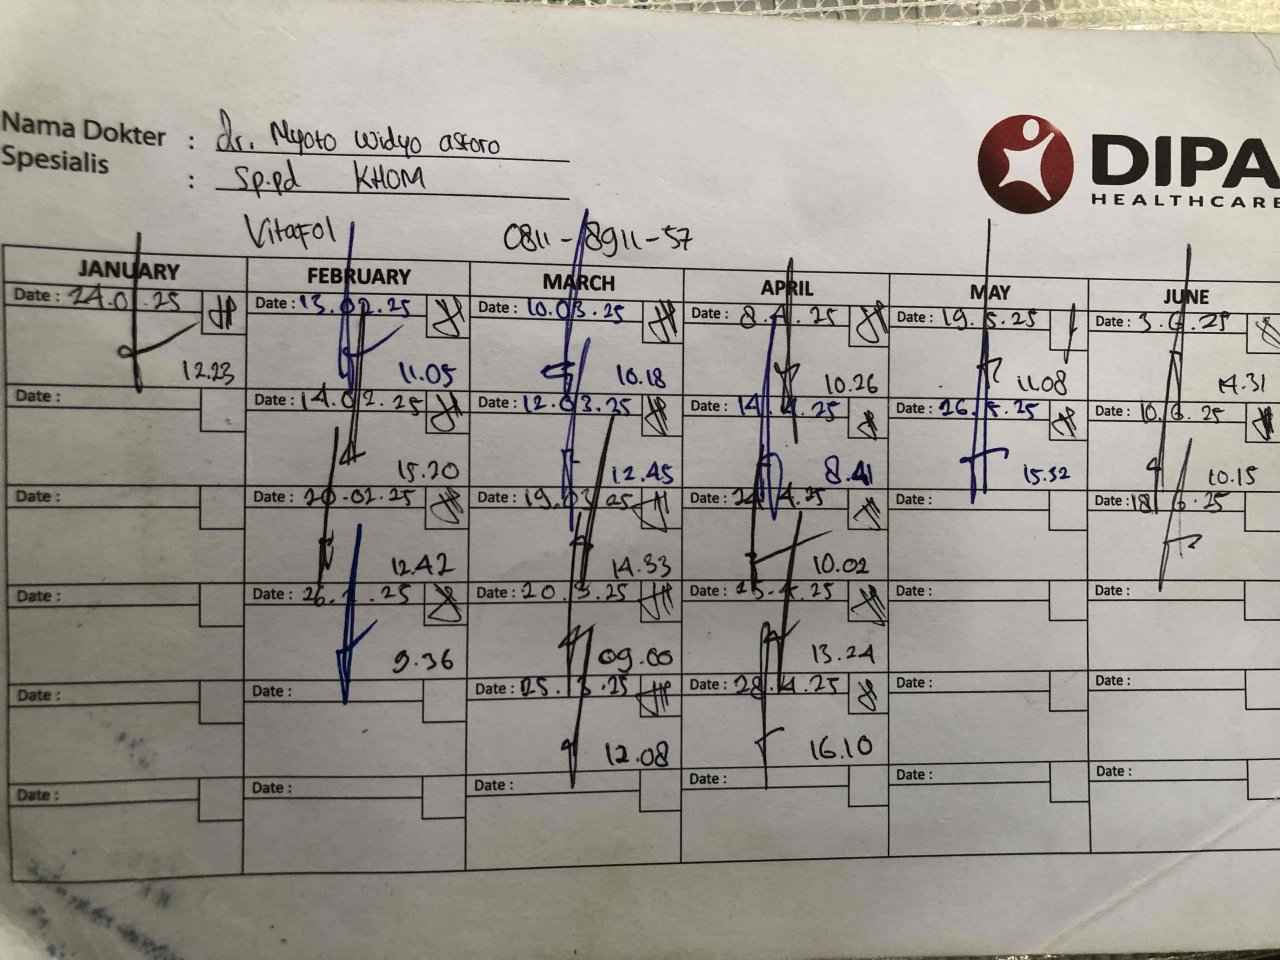 Nama Dokter : dr. Nyoto Widyo astoro
Spesialis : Sp.pd KHOM
DIPA
HEALTHCARE
Vitafol 0811-8911-57
JANUARY FEBRUARY MARCH APRIL MAY JUNE
Date : 24.01.25 Date : 13.02.25 Date : 10.03.25 Date : 8.4.25 Date : 19.5.25 Date : 3.6.25
12.23 11.05 10.18 10.26 11.08 14.31
Date : Date : 14.02.25 Date : 12.03.25 Date : 14.4.25 Date : 26.5.25 Date : 10.6.25
15.20 12.45 8.41 15.32 10.15
Date : Date : 20.02.25 Date : 19.03.25 Date : 24.4.25 Date : Date : 18.6.25
12.42 14.33 10.02
Date : Date : 26.2.25 Date : 20.3.25 Date : 25.4.25 Date : Date :
9.36 09.00 13.24
Date : Date : Date : 25.3.25 Date : 28.4.25 Date : Date :
12.08 16.10
Date : Date : Date : Date : Date : Date :